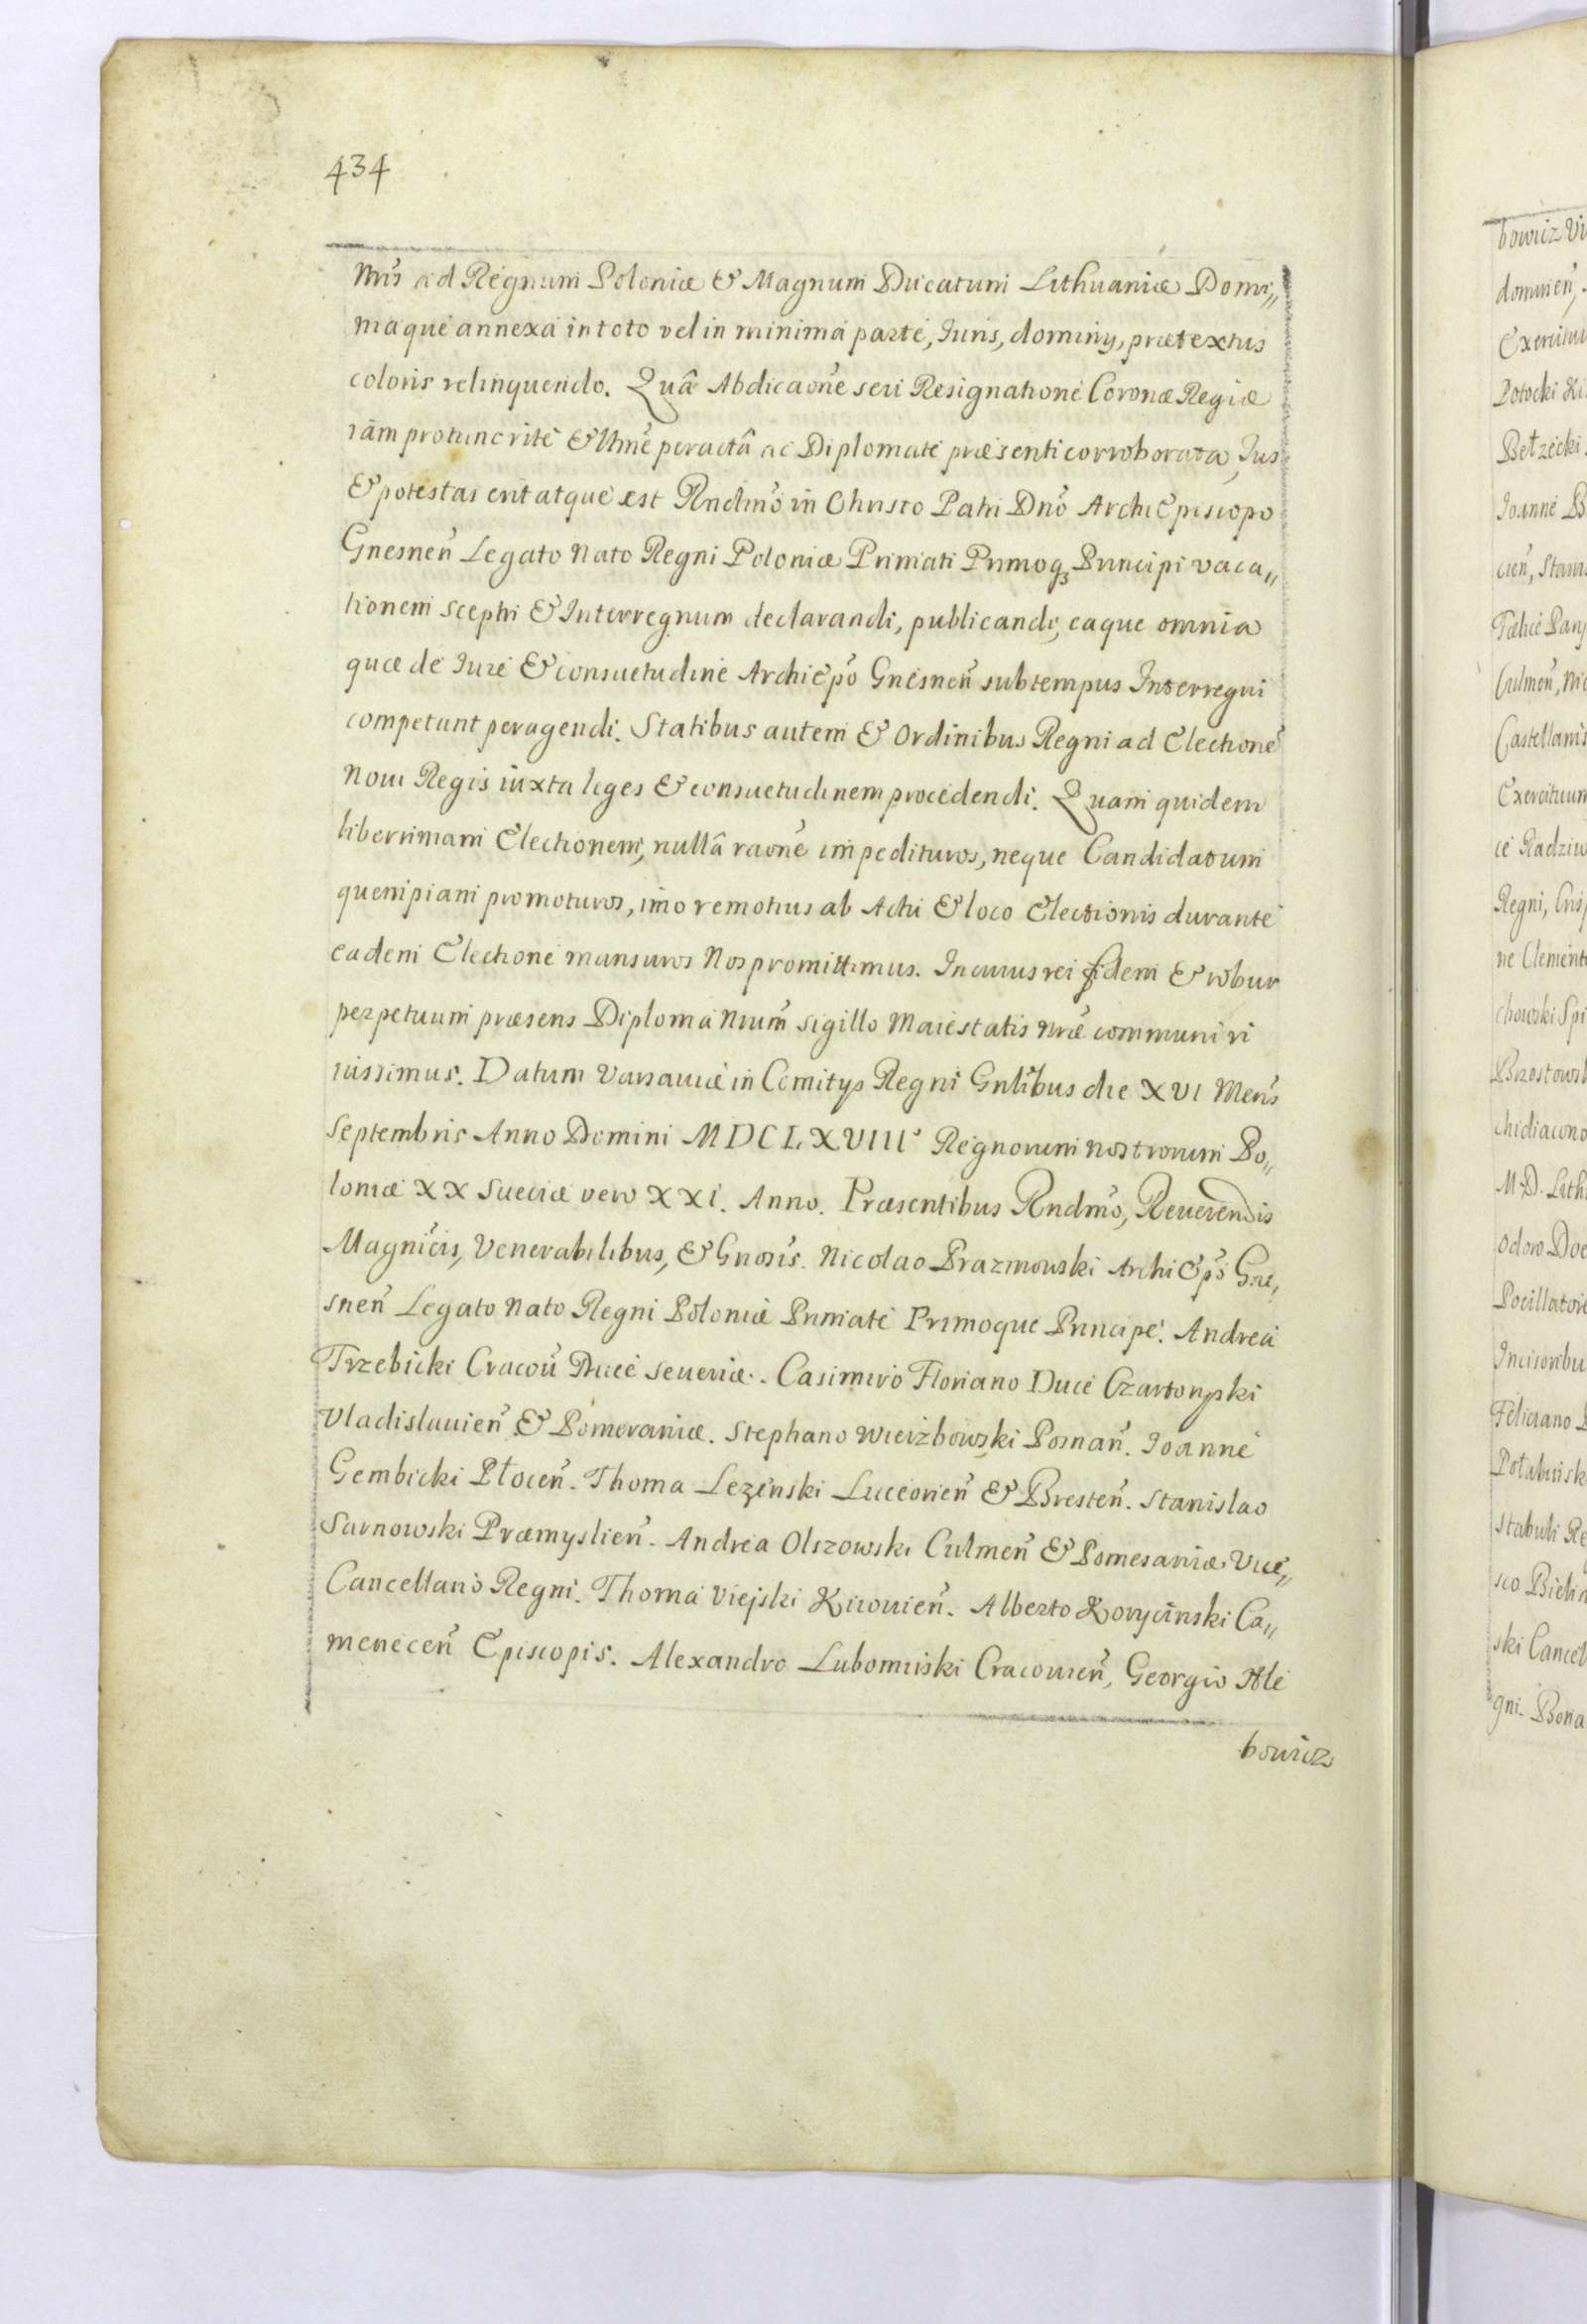 434
Nris ad Regnum Poloniæ & Magnum Ducatum Lithuaniæ Domi„
niaque annexa in toto vel in minima parte, Iuris, dominÿ, prætextus
coloris relinquendo. Quâ Abdicaone seu Resignatione Coronæ Regiæ
iam protunc rite & ltime peractâ ac Diplomate præsenti corroborata, Jus
& potestas erit atque est Rndmo in Christo Patri Dno Archi Episcopo
Gnesnen Legato Nato Regni Poloniæ Primati Primoq3 Principi vaca„
tionem sceptri & Interregnum declarandi, publicandi, eaque omnia
quæ de Iure & consuetudine Archiepo Gnesnen sub tempus Interregni
competunt peragendi. Statibus autem & Ordinibus Regni ad Electione
Noui Regis iuxta leges & consuetudinem procedendi. Quam quidem
liberrimam Electionem, nullâ raone impedituros, neque Candidatum
quempiam promoturos, imo remotius ab Actu & loco Electionis durante
eadem Electione mansuros Nos promittimus. In cuius rei fidem & robur
perpetuum præsens Diploma Nrum sigillo Maiestatis Nræ communiri
iussimus. Datum Varsauiæ in Comitÿs Regni Gnlibus die XVI Mens
Septembris Anno Domini MDCLXVIII Regnorum nostrorum Po„
loniæ XX Sueciæ vero XXI. Anno. Præsentibus Rndmo, Reuerendis
Magnicis, Venerabilibus, & Gnosis. Nicolao Prazmowski Archi Epo Gne„
snen Legato Nato Regni Poloniæ Primate Primoque Principe. Andrea
Trzebicki Cracou Duce Seueriæ. Casimiro Floriano Duce Czartoryski
Vladislauien & Pomeraniæ. Stephano Wierzbowski Posnan. Joanne
Gembicki Płocen. Thoma Lezenski Luceorien & Bresten. Stanislao
Sarnowski Præmyslien. Andrea Olszowski Culmen & Pomesaniæ, Vice„
Cancellario Regni. Thoma Viejski Kiiouien. Alberto Korycinski Ca„
menecen Episcopis. Alexandro Lubomirski Cracouien, Georgio Hle
bowicz
bowicz Vi
Potocki
Bełzecki
Joanne
Culmen,
Castellanis
Exercituum
Regni,
ne Clemente
M. D. Lith
Pocillatore
Feliciano
ski Cancel
gni.